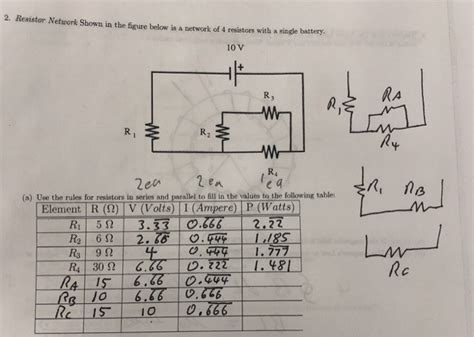 2. Resistor Network Shown in the figure below is a network of 4 resistors with a single battery.
10 V
+
R₃
R₁
R₂
R₄
R₁
RA
R₄
R₁ RB
RC
2ea 2ea 1ea
(a) Use the rules for resistors in series and parallel to fill in the values to the following table:
Element R (Ω) V (Volts) I (Ampere) P (Watts)
R₁ 5 Ω 3.3̅3̅ 0.6̅6̅6̅ 2.2̅2̅
R₂ 6 Ω 2.6̅6̅ 0.4̅4̅4̅ 1.185
R₃ 9 Ω 4 0.4̅4̅4̅ 1.7̅7̅7̅
R₄ 30 Ω 6.6̅6̅ 0.2̅2̅2̅ 1.481
RA 15 6.6̅6̅ 0.4̅4̅4̅
RB 10 6.6̅6̅ 0.6̅6̅6̅
RC 15 10 0.6̅6̅6̅